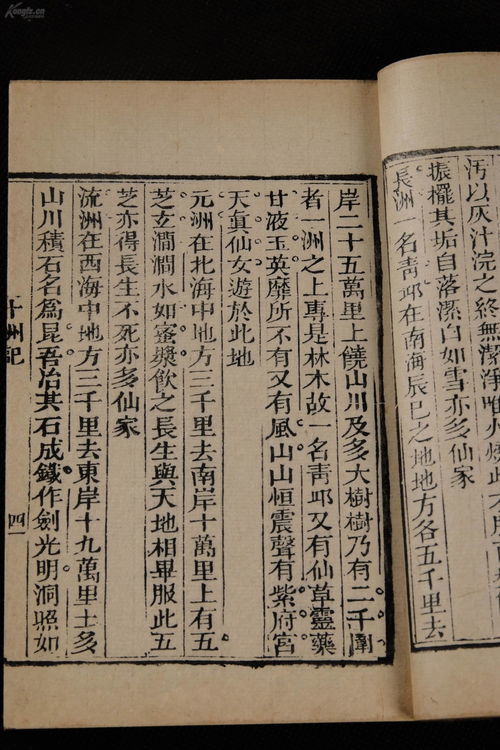 汚以灰汁浣之終無潔淨唯火燒此
振擺其垢自落潔白如雪亦多仙家
長洲一名靑邱在南海辰巳之地地方各五千里去
岸二十五萬里上饒山川及多大樹樹乃有二千圍
者一洲之上專是林木故一名靑邱又有仙草靈藥
甘液玉英靡所不有又有風山山恒震聲有紫府宮
天眞仙女遊於此地
元洲在北海中地方三千里去南岸十萬里上有五
芝玄澗澗水如蜜漿飮之長生與天地相畢服此五
芝亦得長生不死亦多仙家
流洲在西海中地方三千里去東岸十九萬里上多
山川積石名爲昆吾冶其石成鐵作劍光明洞照如
十洲記
四
Kongfz.cn